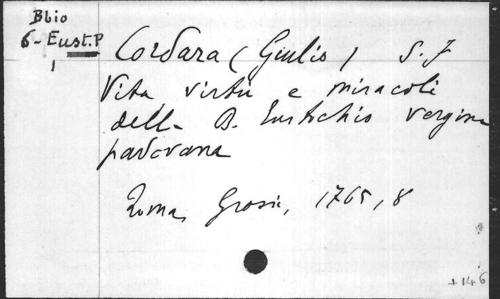 Bbio
6-Eust.P
1
Cordara (Giulio) S.J
Vita virtù e miracoli
della B. Eustochio vergine
padovana
Roma, Grossi, 1765, 8